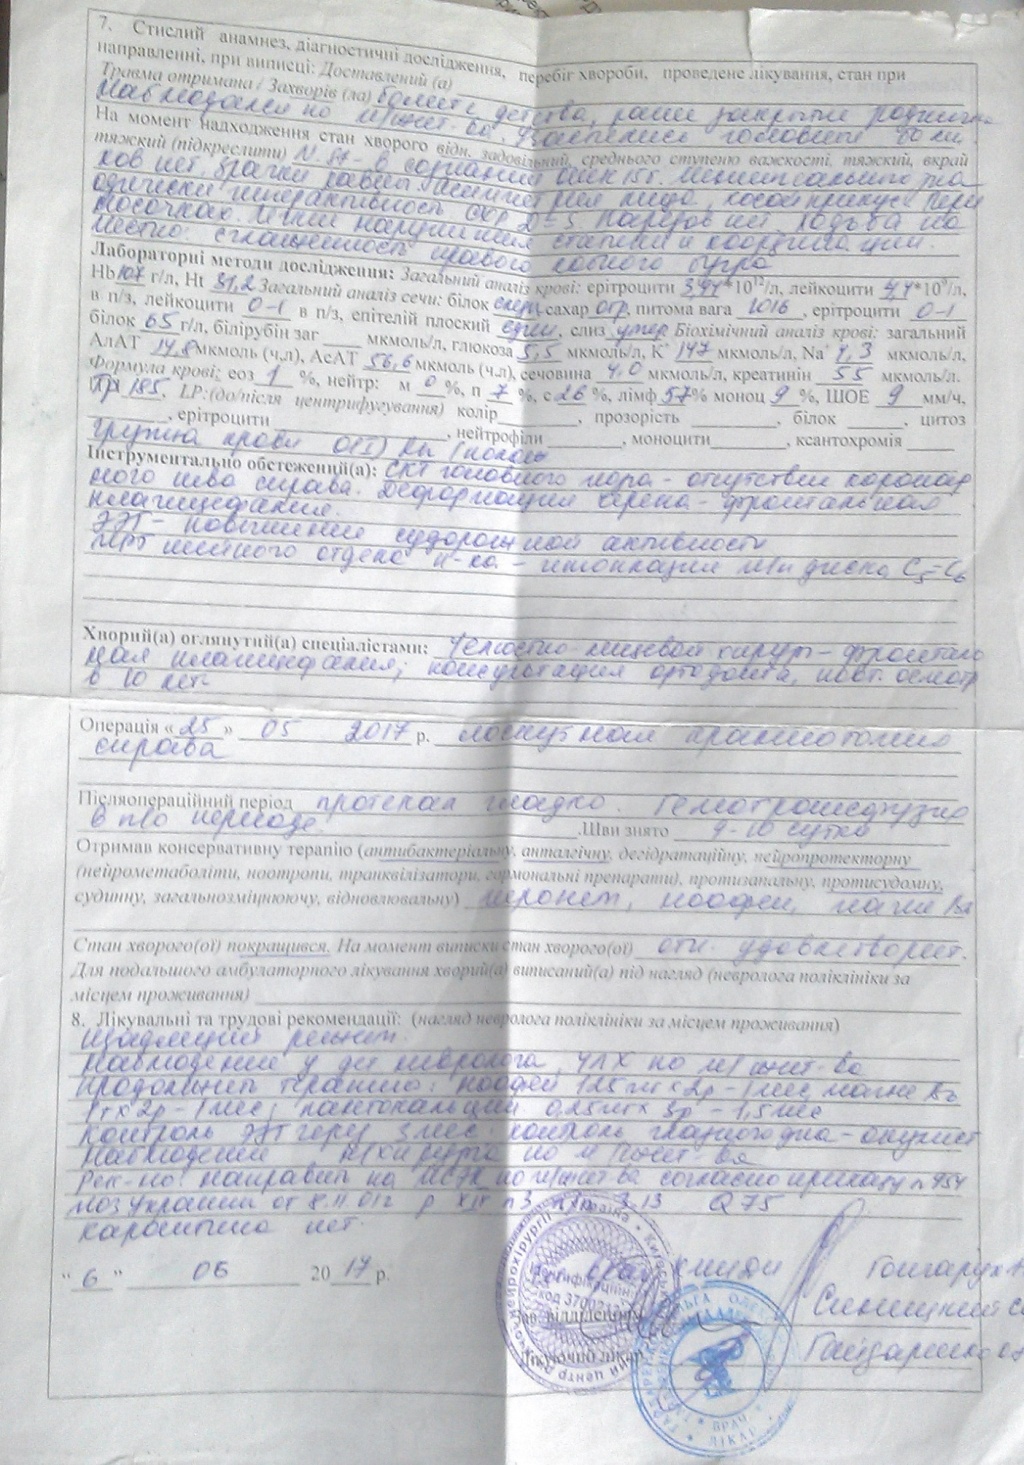 7. Стислий анамнез, діагностичні дослідження, перебіг хвороби, проведене лікування, стан при
направленні, при виписці: Доставлений (а)
Травма отримана / Захворів (ла) болеет с детства, ранее закрытие родничка
Наблюдался по м/жит-ва,
На момент надходження стан хворого відн. задовільний, среднього ступеню важкості, тяжкий, вкрай
тяжкий (підкреслити) в сознании ШКГ 15б. Менингеальных зна
ков нет. Зрачки равны. Асимметрия лица, косой прикус. Пери
одически гиперактивность СХР D=S. Парезов нет. Ходьба на
носочках. Легкие нарушения статики и координации.
Местно: сглаженность правого лобного бугра
Лабораторні методи дослідження: Загальний аналіз крові: еритроцити *10¹²/л, лейкоцити 4,4*10⁹/л,
Hb 107 г/л, Ht 31,2 Загальний аналіз сечи: білок сахар отр. питома вага 1016, еритроцити 0-1
в п/з, лейкоцити 0-1 в п/з, епітелій плоский един, слиз умер Біохімічний аналіз крові: загальний
білок 65 г/л, білірубін заг мкмоль/л, глюкоза 5,5 мкмоль/л, K⁺ 147 мкмоль/л, Na⁺ 4,3 мкмоль/л,
АлАТ 14,8 мкмоль (ч,л), АсАТ 56,6 мкмоль (ч,л), сечовина 4,0 мкмоль/л, креатинін 55 мкмоль/л.
Формула крові: еоз 1 %, нейтр: м 0 %, п 7 %, с 26 %, лімф 57% моноц 9 %, ШОЕ 9 мм/ч,
Тр 185. LP:(до/після центрифугування) колір , прозорість , білок , цитоз
, еритроцити , нейтрофіли , моноцити , ксантохромія
Группа крови 0(I) Rh (полож)
Інструментально обстежений(а): СКТ головного мозга - отсутствие коронар
ного шва справа. Деформация черепа - фронтальная
плагиоцефалия.
ЭЭГ - повышение судорожной активности
МРТ шейного отдела п-ка - м/п диска C5-C6
Хворий(а) оглянутий(а) спеціалістами: Челюстно-лицевой хирург - фронталь
ная плагиоцефалия; консультация ортодонта, повт. осмотр
в 10 лет.
Операція « 25 » 05 2017 р. лоскутная краниотомия
справа
Післяопераційний період протекал гладко. Гемотрансфузия
в п/о периоде. .Шви знято 9-10 сутки
Отримав консервативну терапію (антибактеріальну, анталгічну, дегідратаційну, нейропротекторну
(нейрометаболіти, ноотропи, транквілізатори, гормональні препарати), протизапальну, протисудомну,
судинну, загальнозміцнюючу, відновлювальну) меронем, ноофен, магне В6
Стан хворого(ої) покращився. На момент виписки стан хворого(ої) отн. удовлетворит.
Для подальшого амбулаторного лікування хворий(а) виписаний(а) під нагляд (невролога поліклініки за
місцем проживання)
8. Лікувальні та трудові рекомендації: (нагляд невролога поліклініки за місцем проживання)
Щадящий режим.
Наблюдение у дет невролога, ЧЛХ по м/жит-ва
Продолжить терапию: ноофен 125мг х 2р - 1 мес, магне В6
1т х 2р - 1 мес, пантокальцин 0,25мг х 3р - 1,5 мес
Контроль ЭЭГ через 3 мес. контроль глазного дна - окулист
Наблюдение н/хирурга по м/жит-ва
Рек-но направить на МСЭК по м/жит-ва согласно приказу №454
МОЗ Украины от 8.11 01г р XIV п3 3.13 Q75
Карантина нет.
" 6 " 06 20 17 р.
Зав. відділенням
Лікуючий лікар
Синицкий
ВРАЧ
ЛІКАР